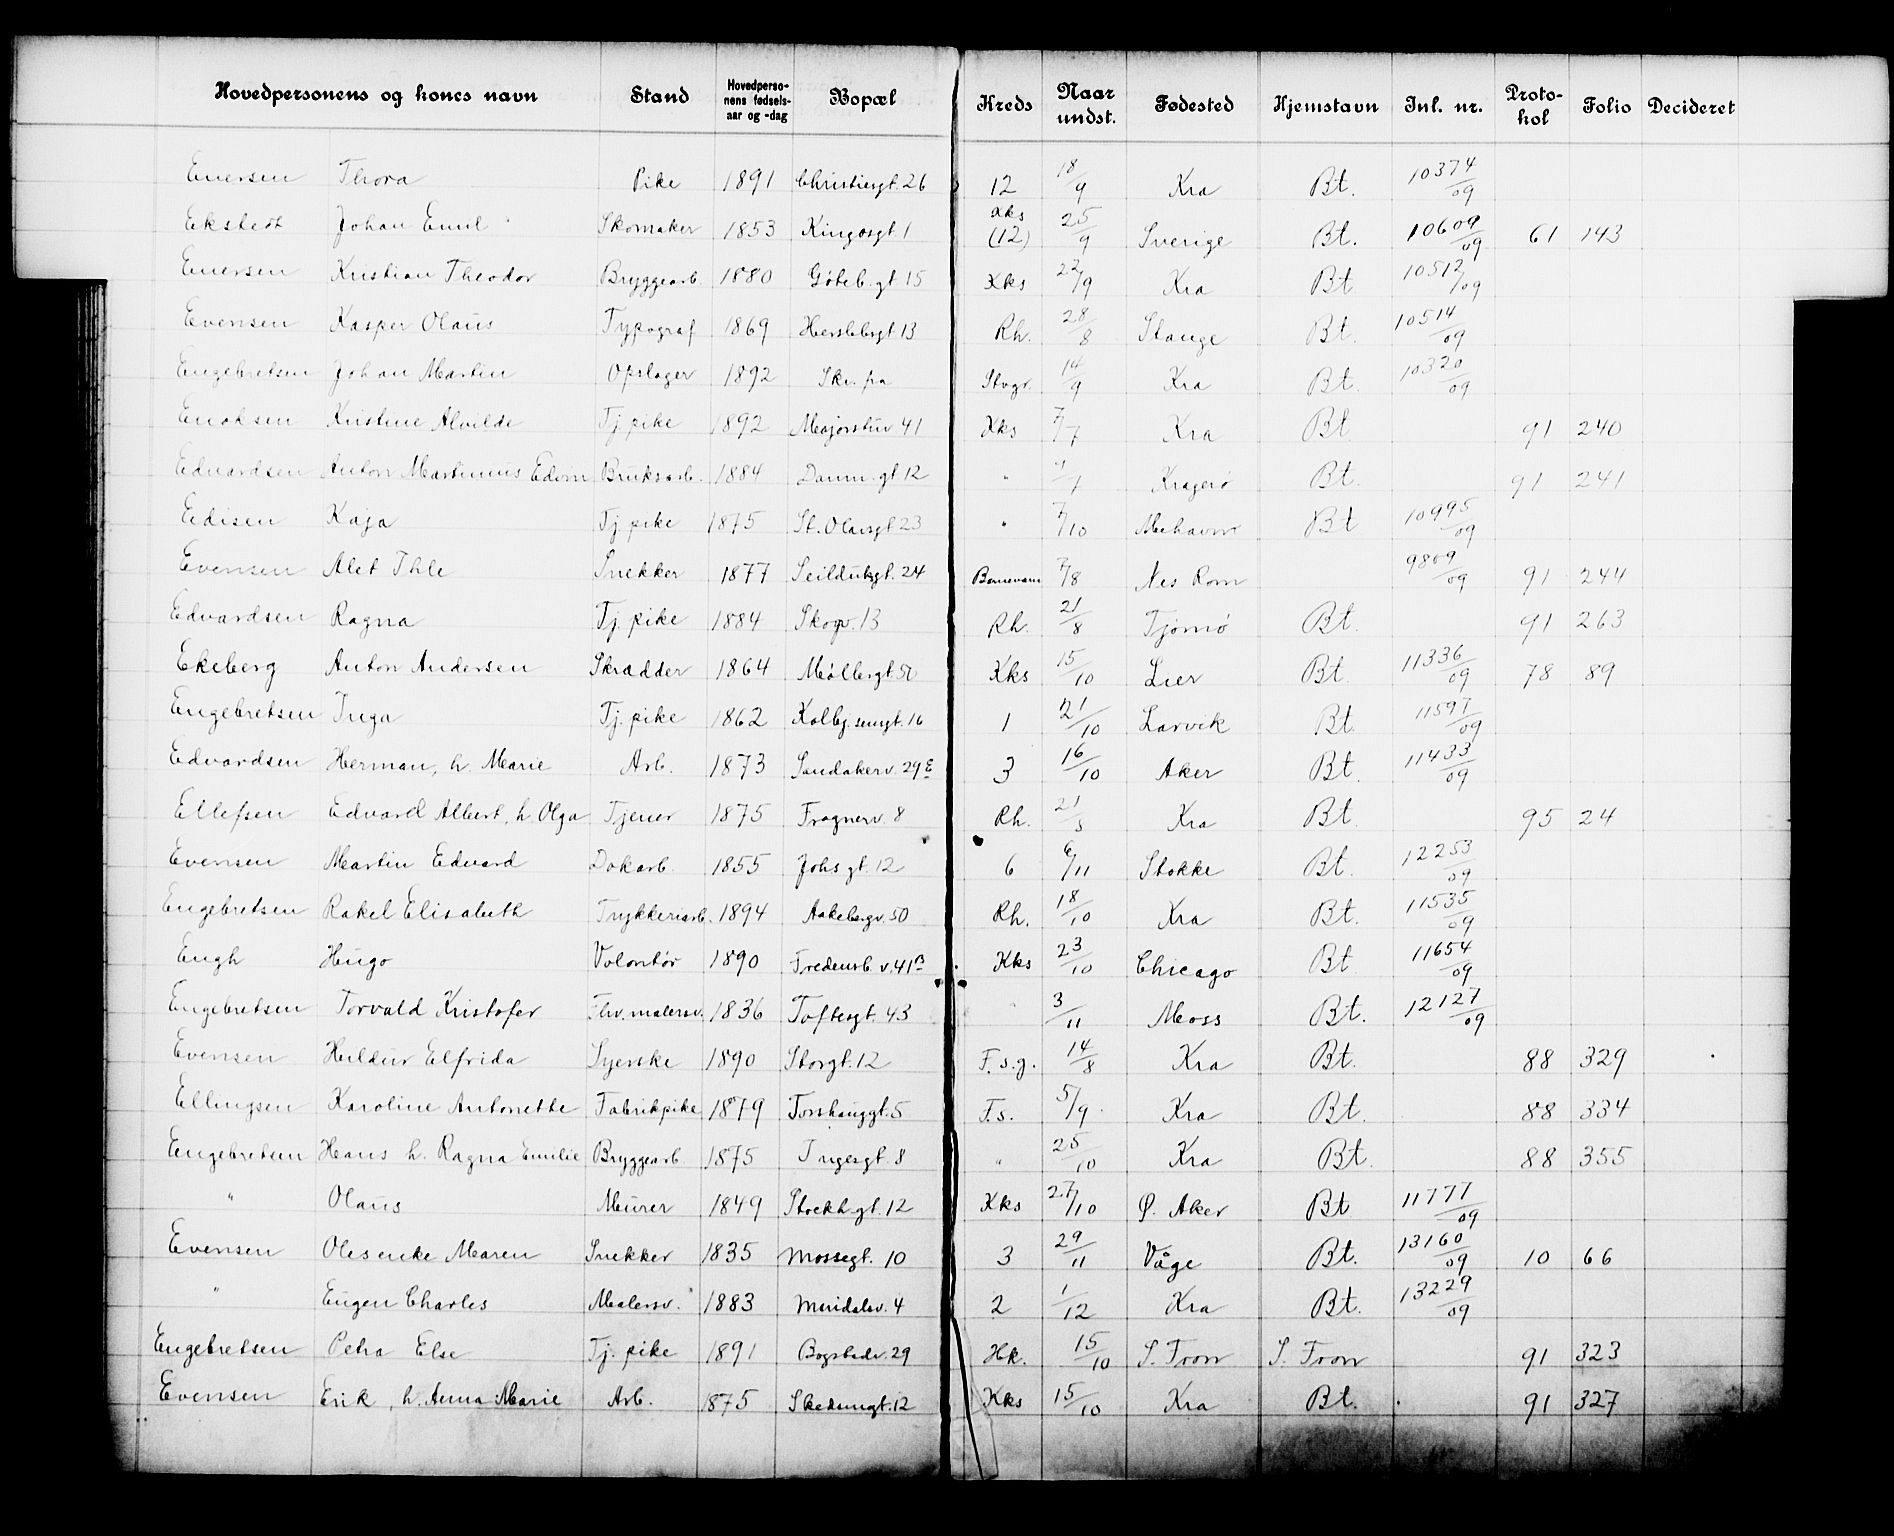 Hovedpersonens og kones navn Stand Hovedperso-nens fødsels-aar og -dag Bopæl Kreds Naar undst. Fødested Hjemstavn Inl. nr. Proto-kol Folio Decideret
Enersen Thora Pike 1891 Christiesgt. 26 12 18/9 Kra Bt. 10374/09
Ekstedt Johan Emil Skomaker 1853 Kingosgt 1 Kks (12) 25/9 Sverige Bt. 10609/09 61 143
Enersen Kristian Theodor Bryggearb. 1880 Göteb. gt. 15 Kks 22/9 Kra Bt 10512/09
Evensen Kasper Olaus Typograf 1869 Herslebsgt 13 Rh. 28/8 Stange Bt. 10514/09
Engebretsen Johan Martin Opslager 1892 14/9 Kra Bt. 10320/09
Enoksen Kristine Alvilde Tj. pike 1892 Majorstuv 41 Kks 7/7 Kra Bt 91 240
Edvardsen Anton Martinius Edvin Bruksarb. 1884 Danm. gt 12 " Kragerø Bt. 91 241
Edisen Kaja Tj. pike 1875 St. Olavsgt 23 " 7/10 Mehavn Bt 10995/09
Evensen Alet Ihle Snekker 1877 Seilduksgt. 24 7/8 Nes Rom 9809/09 91 244
Edvardsen Ragna Tj. pike 1884 Skogv. 13 Rh. 21/8 Tjømø Bt. 91 263
Ekeberg Anton Andersen Skrædder 1864 Møllergt 50 Kks 15/10 Lier Bt. 11336/09 78 89
Engebretsen Inga Tj. pike 1862 Kolbj.sensgt. 16 1 21/10 Larvik Bt. 11597/09
Edvardsen Herman, h. Marie Arb. 1873 Sandakerv. 29 E 3 16/10 Aker Bt. 11433/09
Ellefsen Edvard Albert, h. Olga Tjener 1875 Frognerv. 8 Rh. Kra Bt. 95 24
Evensen Martin Edvard Dokarb. 1855 Johs gt. 12 6 6/11 Stokke Bt. 12253/09
Engebretsen Rakel Elisabeth Trykkeriarb. 1894 Aakebergv. 50 Rh. 18/10 Kra Bt. 11535/09
Engh Hugo Volontør 1890 Fredensb. v. 41 B Kks 23/10 Chicago Bt 11654/09
Engebretsen Torvald Kristofer Fhv. malersv. 1836 Toftesgt. 43 " 3/11 Moss Bt. 12127/09
Evensen Huldur Elfrida Syerske 1890 Storgt. 12 F.s.g. 14/8 Kra Bt. 88 329
Ellingsen Karoline Antonette Fabrikpike 1879 Torshauggt. 5 F.s. 5/9 Kra Bt. 88 334
Engebretsen Hans h. Ragna Emilie Bryggearb. 1875 Ingesgt. 8 " 25/10 Kra Bt. 88 355
" Olaus Murer 1849 Stockh. gt. 12 Kks 27/10 Ø. Aker Bt 11777/09
Evensen Oles enke Maren Snekker 1835 Mossegt. 10 3 29/11 Våge Bt. 13160/09 10 66
" Eugen Charles Malersv. 1883 Maridalsv. 4 2 1/12 Kra Bt. 13229/09
Engebretsen Petra Else Tj. pike 1891 Bogstadv. 29 Hk. 15/10 S. Fron S. Fron 91 323
Evensen Erik, h. Anna Marie Arb. 1875 Skedsmgt. 12 Kks 15/10 Kra Bt. 91 327